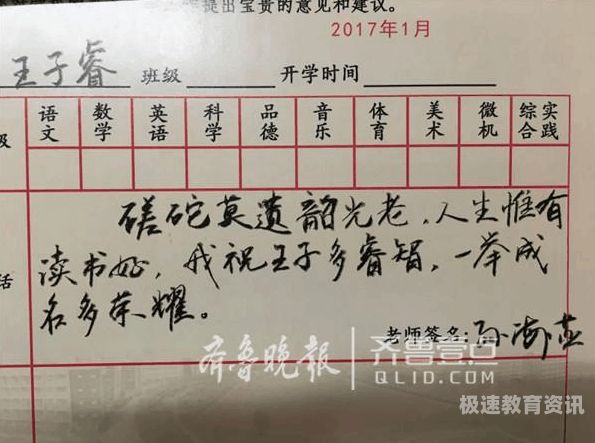 提出宝贵的意见和建议。
2017年1月
王子睿 班级 开学时间
语文 数学 英语 科学 品德 音乐 体育 美术 微机 综合实践
级
磋砣莫遗韶光老,人生惟有
读书好,我祝王子多睿智,一举成
名多荣耀。
话
老师签名:
齐鲁晚报 齐鲁壹点
QLID.COM
极速教育资讯